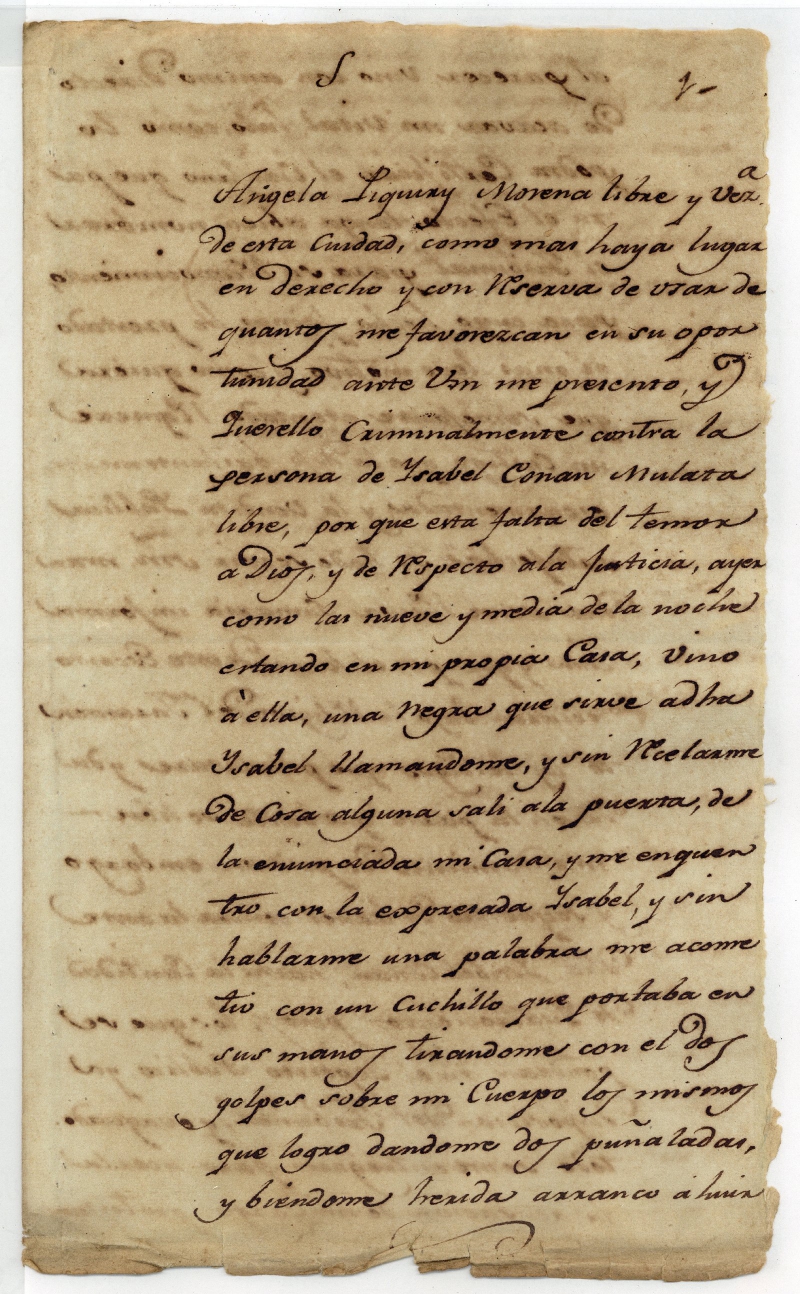 S 1-
Angela Piquiry Morena libre y Vez.ª
de esta Cuidad, como mas haya lugar
en derecho y con Reserva de usar de
quantos me favorezcan en su opor
tunidad ante Vm me presento, y
Querello Criminalmente contra la
persona de Ysabel Conan Mulata
libre, por que esta falta del temor
a Dios, y de Respecto a la Justicia, ayer
como las nueve y media de la noche
estando en mi propia Casa, vino
à ella, una Negra que sirve adha
Ysabel llamandome, y sin Recelarme
de Cosa alguna sali ala puerta, de
la enunciada mi Casa, y me enquen
tro con la expresada Ysabel, y sin
hablarme una palabra me acome
tio con un Cuchillo que portaba en
sus manos tirandome con el dos
golpes sobre mi Cuerpo los mismos
que logro dandome dos puñaladas,
y biendome herida arranco a huir